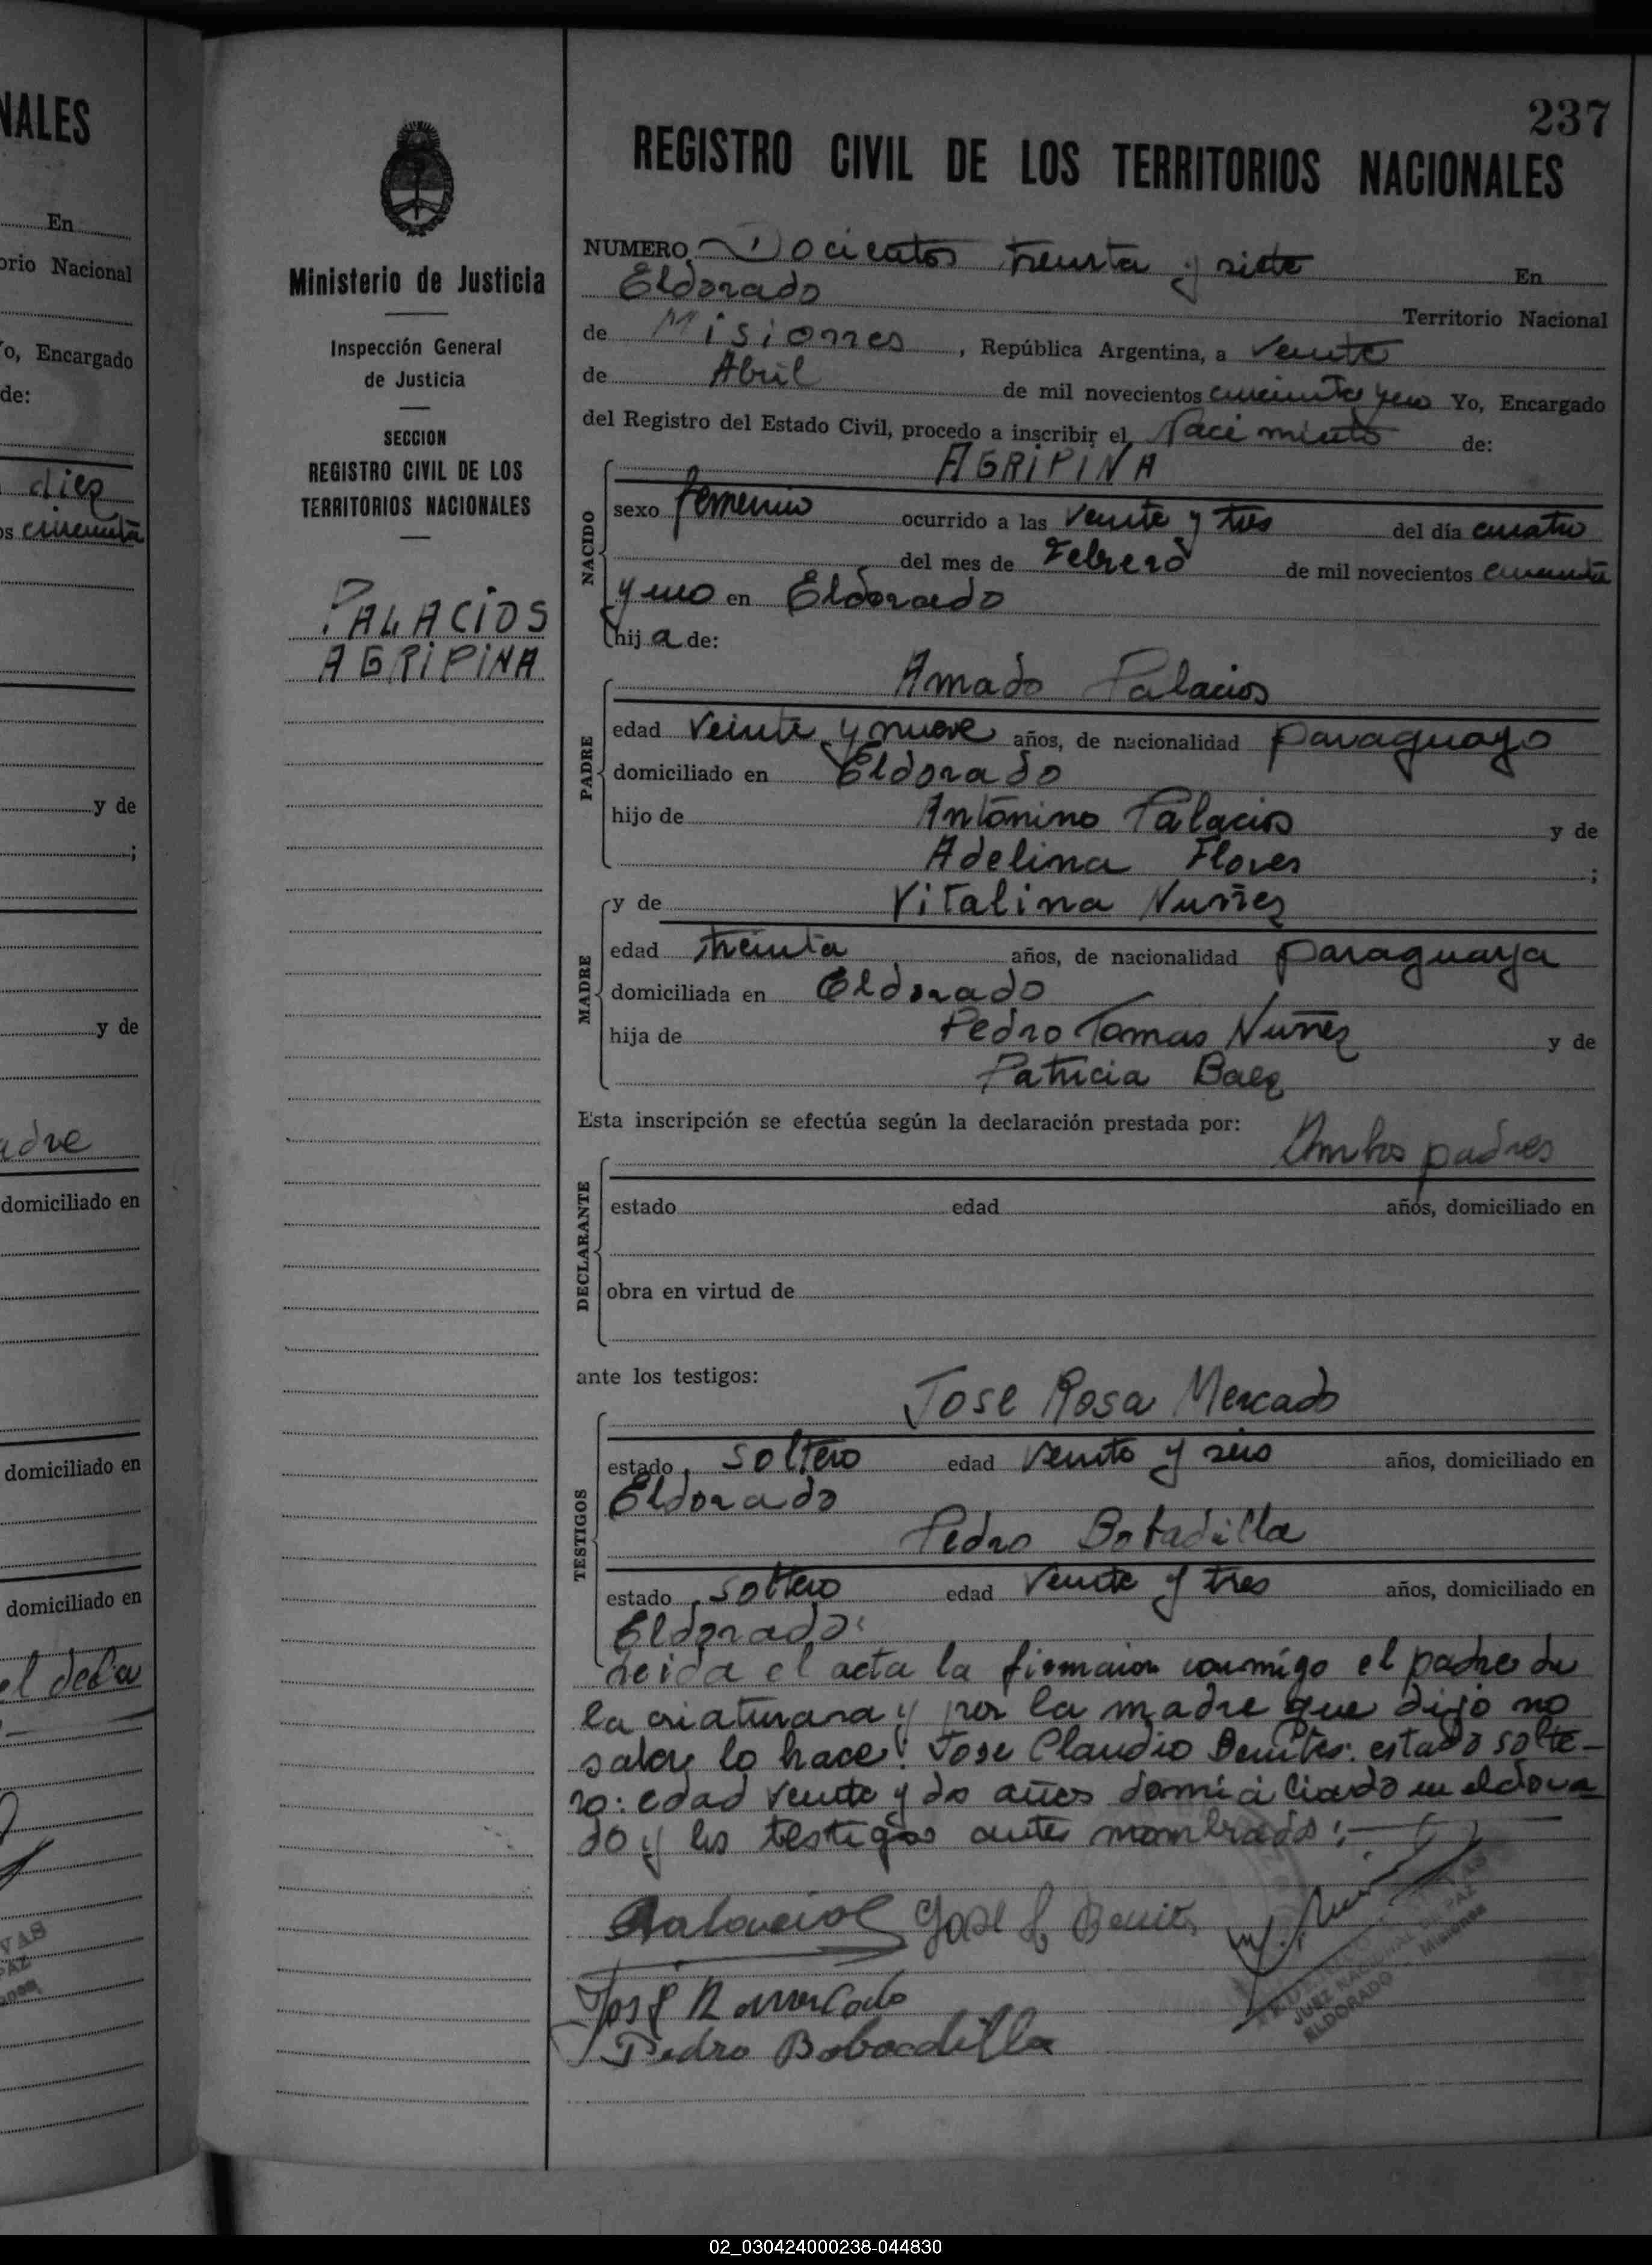 NALES
En
orio Nacional
o, Encargado
de:
diez
os cincuenta
y de
;
y de
adre
domiciliado en
domiciliado en
domiciliado en
el decla
237
REGISTRO CIVIL DE LOS TERRITORIOS NACIONALES
Ministerio de Justicia
Inspección General
de Justicia
SECCION
REGISTRO CIVIL DE LOS
TERRITORIOS NACIONALES
PALACIOS
AGRIPINA
NUMERO Docientos treinta y siete En
Eldorado Territorio Nacional
de Misiones, República Argentina, a veinte
de Abril de mil novecientos cincuenta y uno Yo, Encargado
del Registro del Estado Civil, procedo a inscribir el Nacimiento de:
NACIDO
AGRIPINA
sexo femenino ocurrido a las veinte y tres del día cuatro
del mes de Febrero de mil novecientos cincuenta
y uno en Eldorado
hija de:
PADRE
Amado Palacios
edad veinte y nueve años, de nacionalidad paraguayo
domiciliado en Eldorado
hijo de Antonino Palacios y de
Adelina Flores ;
MADRE
y de Vitalina Nuñez
edad treinta años, de nacionalidad paraguaya
domiciliada en Eldorado
hija de Pedro Tomas Nuñez y de
Patricia Baez
Esta inscripción se efectúa según la declaración prestada por:
DECLARANTE
Ambos padres
estado edad años, domiciliado en
obra en virtud de
ante los testigos:
TESTIGOS
Jose Rosa Mercado
estado soltero edad veinte y seis años, domiciliado en
Eldorado
Pedro Bobadilla
estado soltero edad veinte y tres años, domiciliado en
Eldorado:
Leida el acta la firmaron conmigo el padre de
la criaturara y por la madre que dijo no
saber lo hace: Jose Claudio Benites: estado solte-
ro: edad veinte y do años domiciliado en eldora
do y los testigos antes nombrado:
Palacios Jose C Benites
José R Mercado
Pedro Bobadilla
JUEZ NACIONAL DE PAZ
ELDORADO - Misiones
02_030424000238-044830